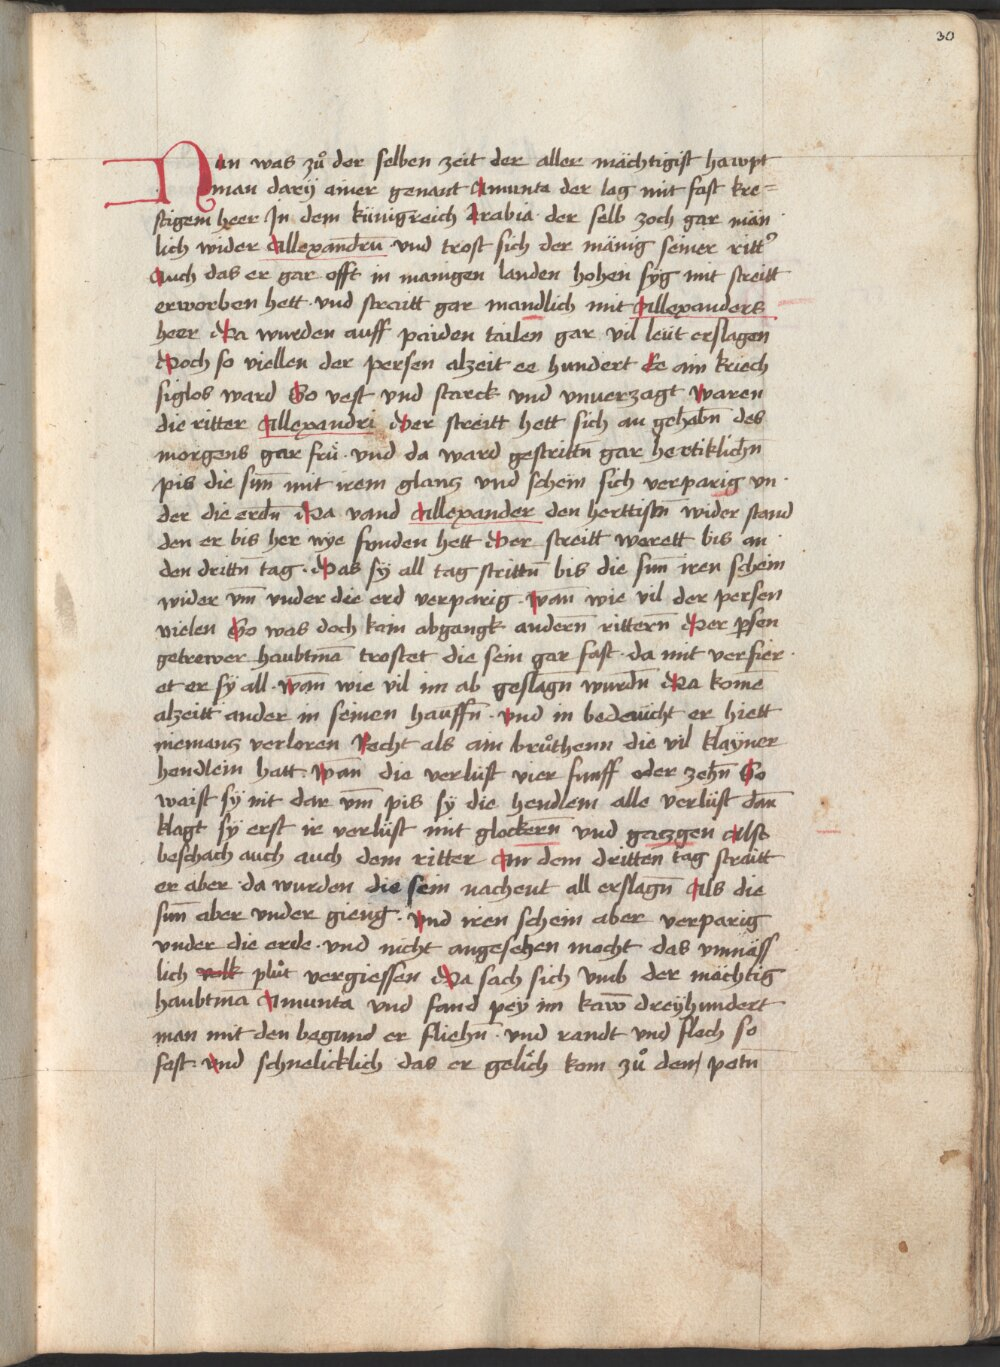 30
Nun was zů der selben zeit der aller mächtigist hawpt
man darÿ ainer genant Amunta der lag mit fast kre=
ftigem heer Jn dem künigreich Arabia · der selb zoch gar män
lich wider Allexandrū · vnd trost sich der mänig seiner ritt᾿
Auch das er gar offt in manigen landen hohen sÿg mit streitt
erworben hett · vnd straitt gar mandlich mit Allexanders
heer Da wurden auff paiden tailen gar vil leüt erslagen
Doch so viellen der persen alzeit ee hundert Ee ain kriech
siglos ward So vest vnd starck vnd vnuerzagt waren
die ritter Allexandri Der streitt hett sich an gehabn̄ des
morgens gar frü · vnd da ward gestrittn̄ gar hertiklichn̄
pis die sun̄ mit irem glantz vnd schein sich verparig vn ·
der die erdn̄ Da vand Allexander den herttistn̄ wider stand
den er bis her nye funden hett Der streitt werett bis an ·
den drittn̄ tag · Das sÿ all tag strittn̄ bis die sun̄ iren schein
wider vm̄ vnder die erd verparig · wan̄ wie vil der persen
vielen So was doch kain abgangk andern̄ rittern̄ Der p̄sen
getrewer haubtmā trostet die sein gar fast · da mit verfier ·
et er sÿ all · wan̄ wie vil im ab geslagn̄ wurdn̄ Da komē
alzeitt ander in seinen hauffn̄ · vnd in bedeücht er hiett
niemantz verloren Recht als ain brůthenn die vil klaÿner
hendlein hatt · wan̄ die verlüst vier funff oder zehn̄ So
waist sÿ nit dar vm̄ pis sÿ die hendlein alle verlüst dan̄
klagt sÿ erst ir verlüst mit glockern̄ vnd gatzgen Alsẜ
beschach auch auch dem ritter An dem dritten tag straitt
er aber · da wurden die sein nachent all erslagn̄ Als die
sun̄ aber vnder gieng · vnd iren schein aber verparig
vnder die erde · vnd nicht angesehen mocht das vnmäss
lich volk plůt vergiessen Da sach sich vmb der mächtig
haubtmā Amunta vnd fand peÿ im kaw̄ dreÿhundert
man mit den begund er fliehn̄ · vnd randt vnd floch so
fast · vnd schnelicklich · das er gelich kom zů dem potn